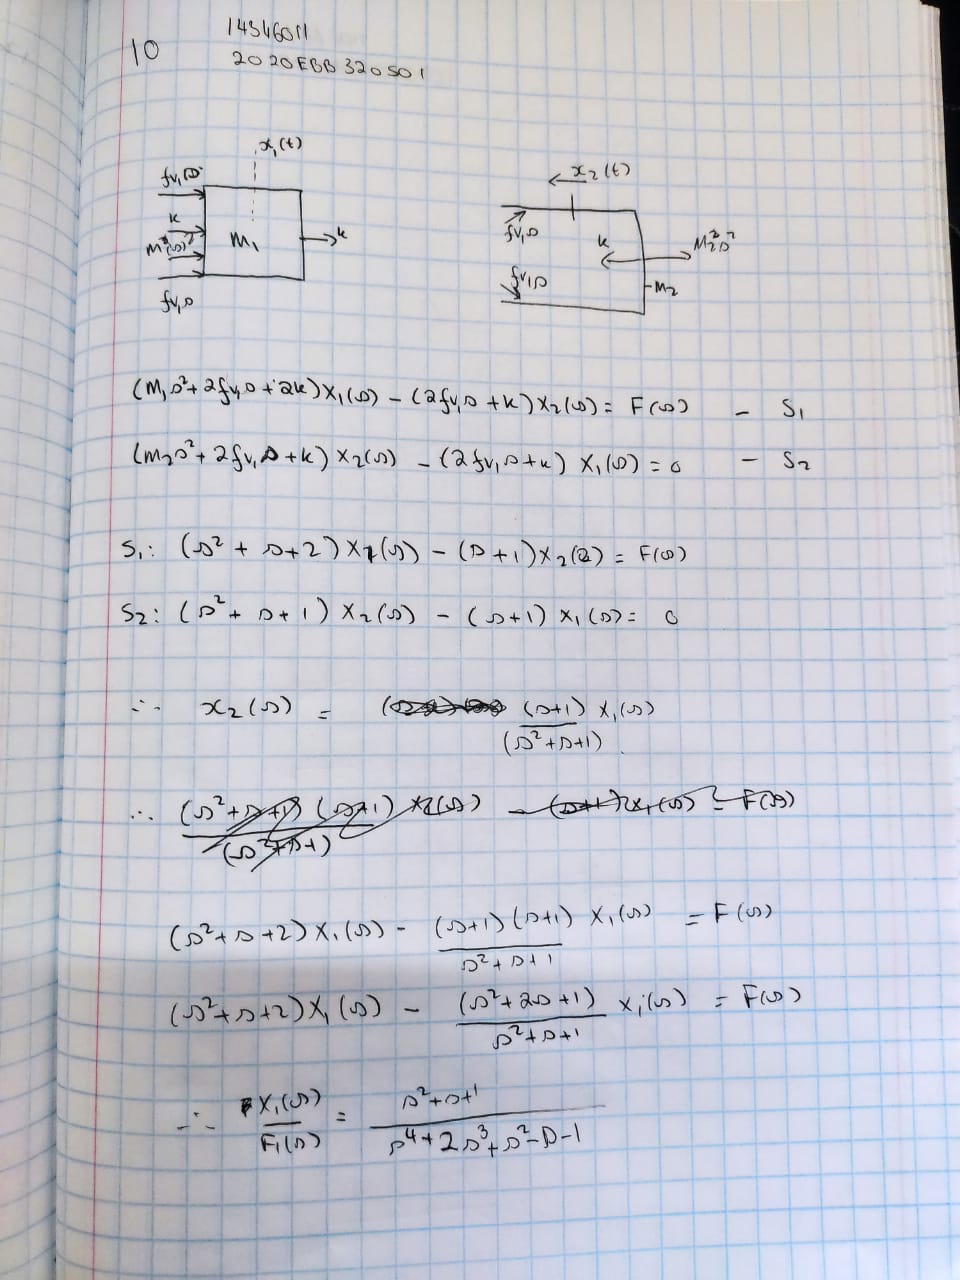 14346011
10
2020EBB320501
x₁(t)
fv₁s
k
M₁
k
fv₁s
x₂(t)
fv₁s
k
M₂s²
fv₁s
M₂
(M₁s²+2fv₁s+2k)X₁(s) - (2fv₁s+k)X₂(s) = F(s) - S₁
(M₂s²+2fv₁s+k)X₂(s) - (2fv₁s+k)X₁(s) = 0 - S₂
S₁: (s²+s+2)X₁(s) - (s+1)X₂(s) = F(s)
S₂: (s²+s+1)X₂(s) - (s+1)X₁(s) = 0
∴ x₂(s) = (s+1)X₁(s)
(s²+s+1)
∴ (s²+s+1)(s+1)X₂(s) - (s+1)X₁(s) = F(s)
(s²+s+1)
(s²+s+2)X₁(s) - (s+1)(s+1) X₁(s) = F(s)
s²+s+1
(s²+s+2)X₁(s) - (s²+2s+1) X₁(s) = F(s)
s²+s+1
∴ X₁(s) = s²+s+1
F₁(s) s⁴+2s³+s²-s-1